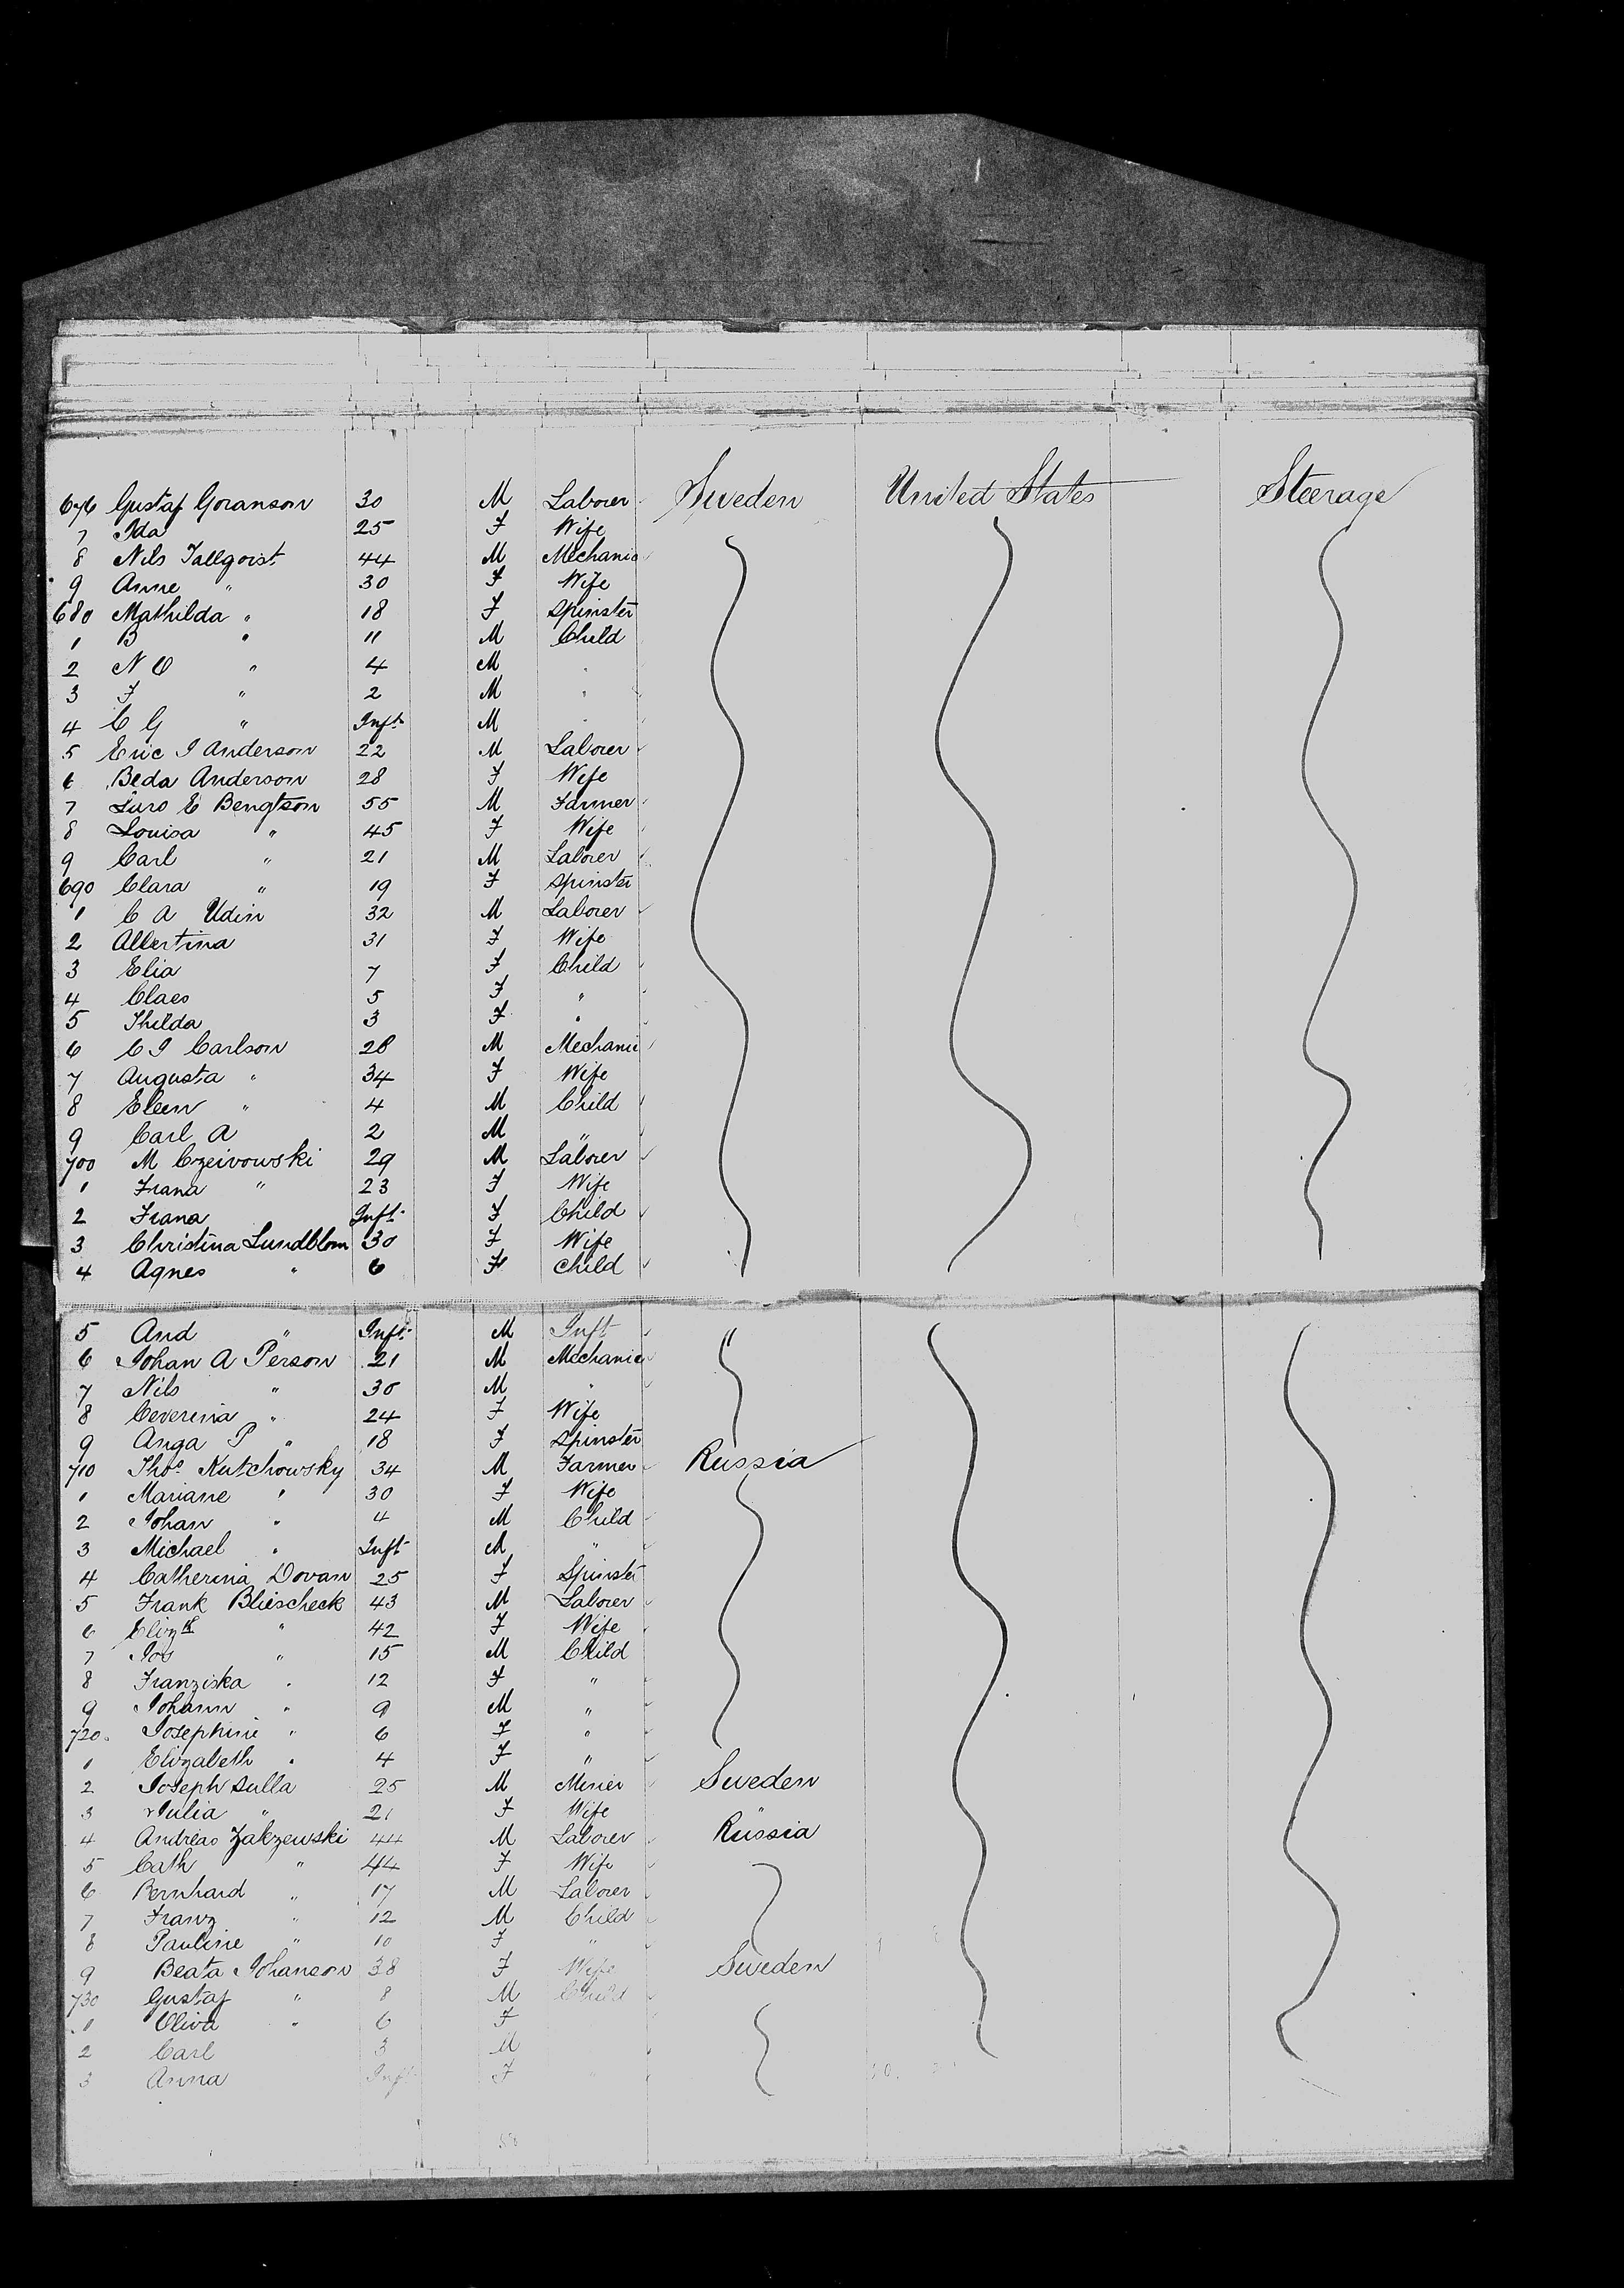 676 Gustaf Goranson 30 M Laborer Sweden United States Steerage
7 Ida 25 F Wife
8 Nils Tallgoist 44 M Mechanic
9 Anne " 30 F Wife
680 Mathilda " 18 F Spinster
1 B " 11 M Child
2 N O " 4 M "
3 F " 2 M "
4 C G " Inft M "
5 Eric I Anderson 22 M Laborer
6 Beda Anderson 28 F Wife
7 Lars E Bengtson 55 M Farmer
8 Louisa " 45 F Wife
9 Carl " 21 M Laborer
690 Clara " 19 F Spinster
1 C A Udin 32 M Laborer
2 Albertina 31 F Wife
3 Elia 7 F Child
4 Claes 5 F "
5 Thilda 3 F "
6 C I Carlson 28 M Mechanic
7 Augusta " 34 F Wife
8 Eleen " 4 M Child
9 Carl A 2 M "
700 M Czeivowski 29 M Laborer
1 Frana " 23 F Wife
2 Frana Inft F Child
3 Christina Lundblom 30 F Wife
4 Agnes " 6 F Child
5 And " Inft M Inft "
6 Johan A Person 21 M Mechanic
7 Nils " 30 M "
8 Ceverina " 24 F Wife
9 Anga P " 18 F Spinster
710 Thos Kutchowsky 34 M Farmer Russia
1 Mariane " 30 F Wife
2 Johan " 4 M Child
3 Michael " Inft M "
4 Catherina Dovan 25 F Spinster
5 Frank Bliescheck 43 M Laborer
6 Elizth " 42 F Wife
7 Jos " 15 M Child
8 Franziska " 12 F "
9 Johann " 9 M "
720 Josephine " 6 F "
1 Elizabeth " 4 F "
2 Joseph Sulla 25 M Minier Sweden
3 Julia " 21 F Wife "
4 Andreas Zakzewski 44 M Laborer Russia
5 Cath " 44 F Wife
6 Bernhard " 17 M Laborer
7 Franz " 12 M Child
8 Pauline " 10 F "
9 Beata Johanson 38 F Wife Sweden
730 Gustaf " 8 M Child
1 Oliva " 6 F
2 Carl 3 M
3 Anna Inft F